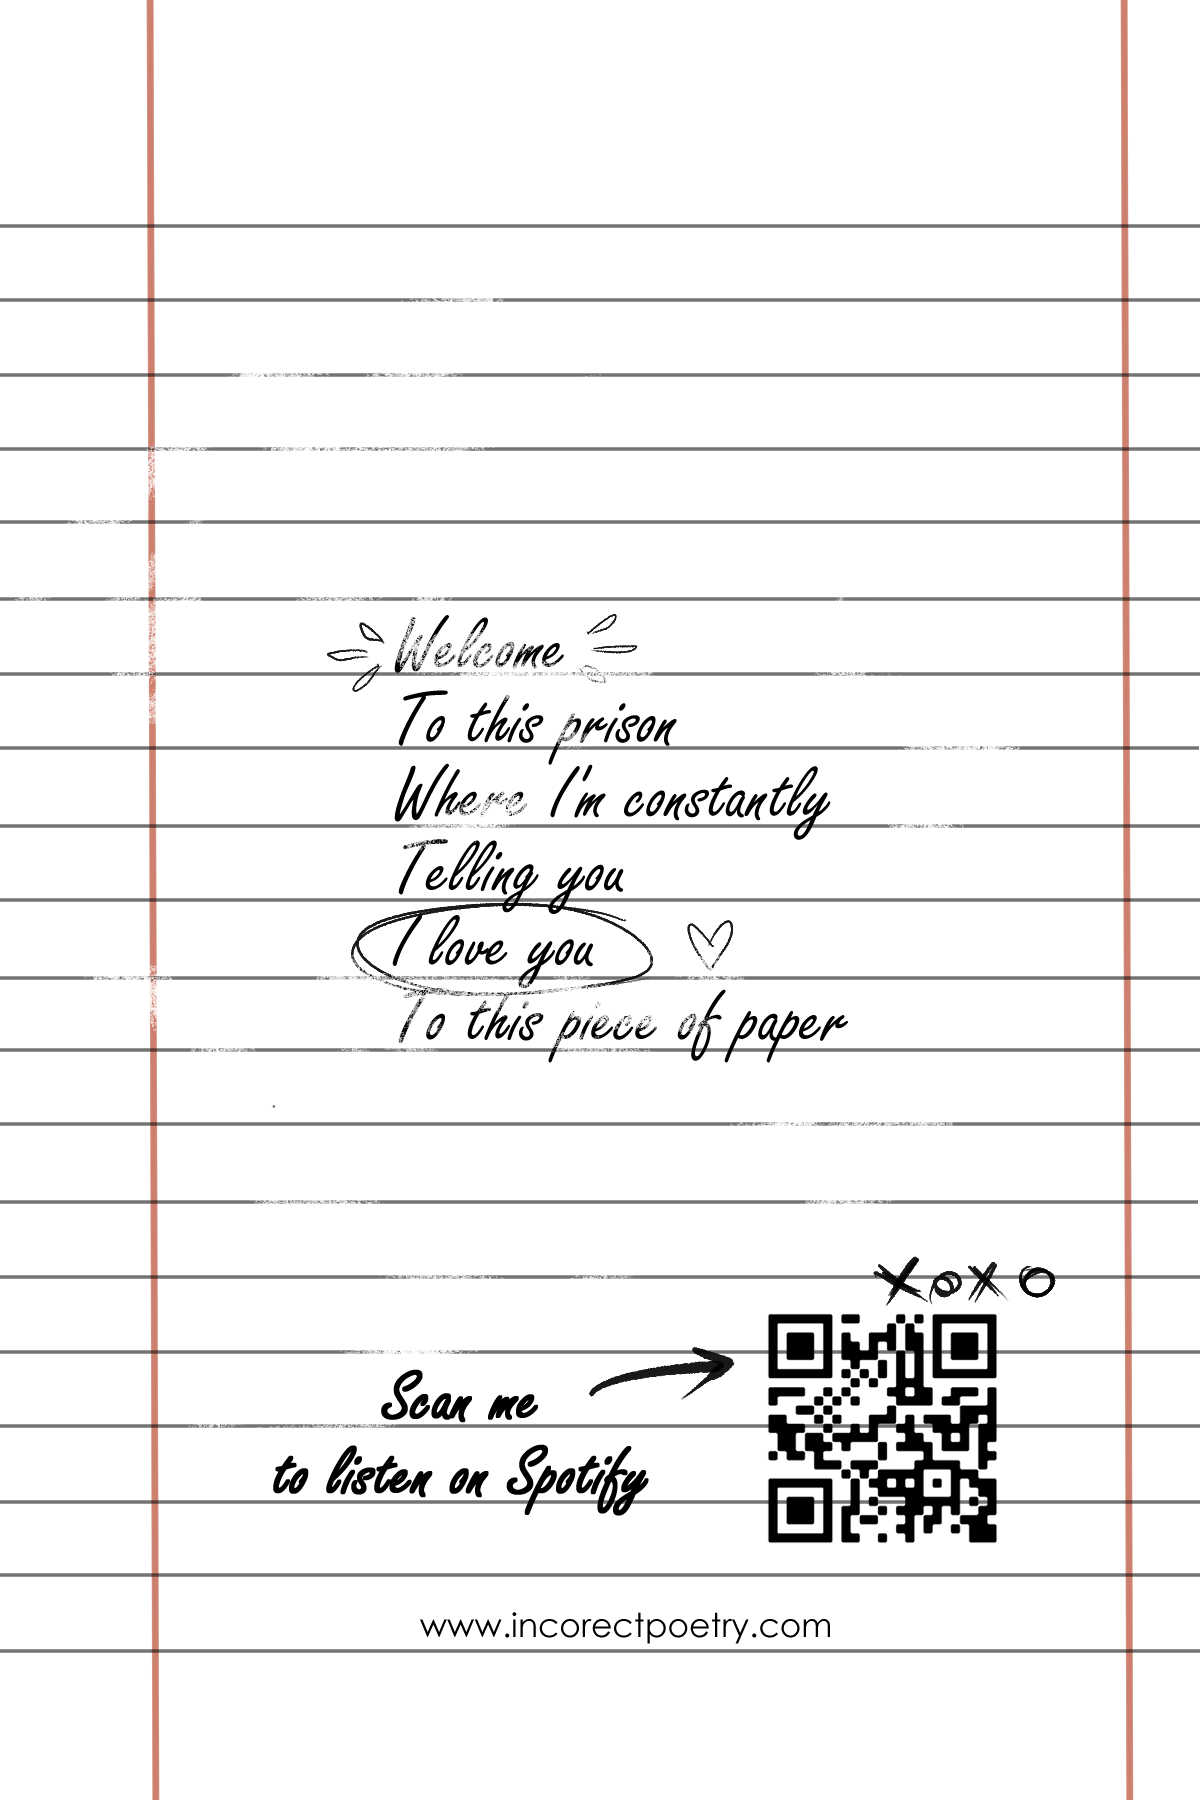 Welcome
To this prison
Where I'm constantly
Telling you
I love you
To this piece of paper
XOXO
Scan me
to listen on Spotify
www.incorectpoetry.com